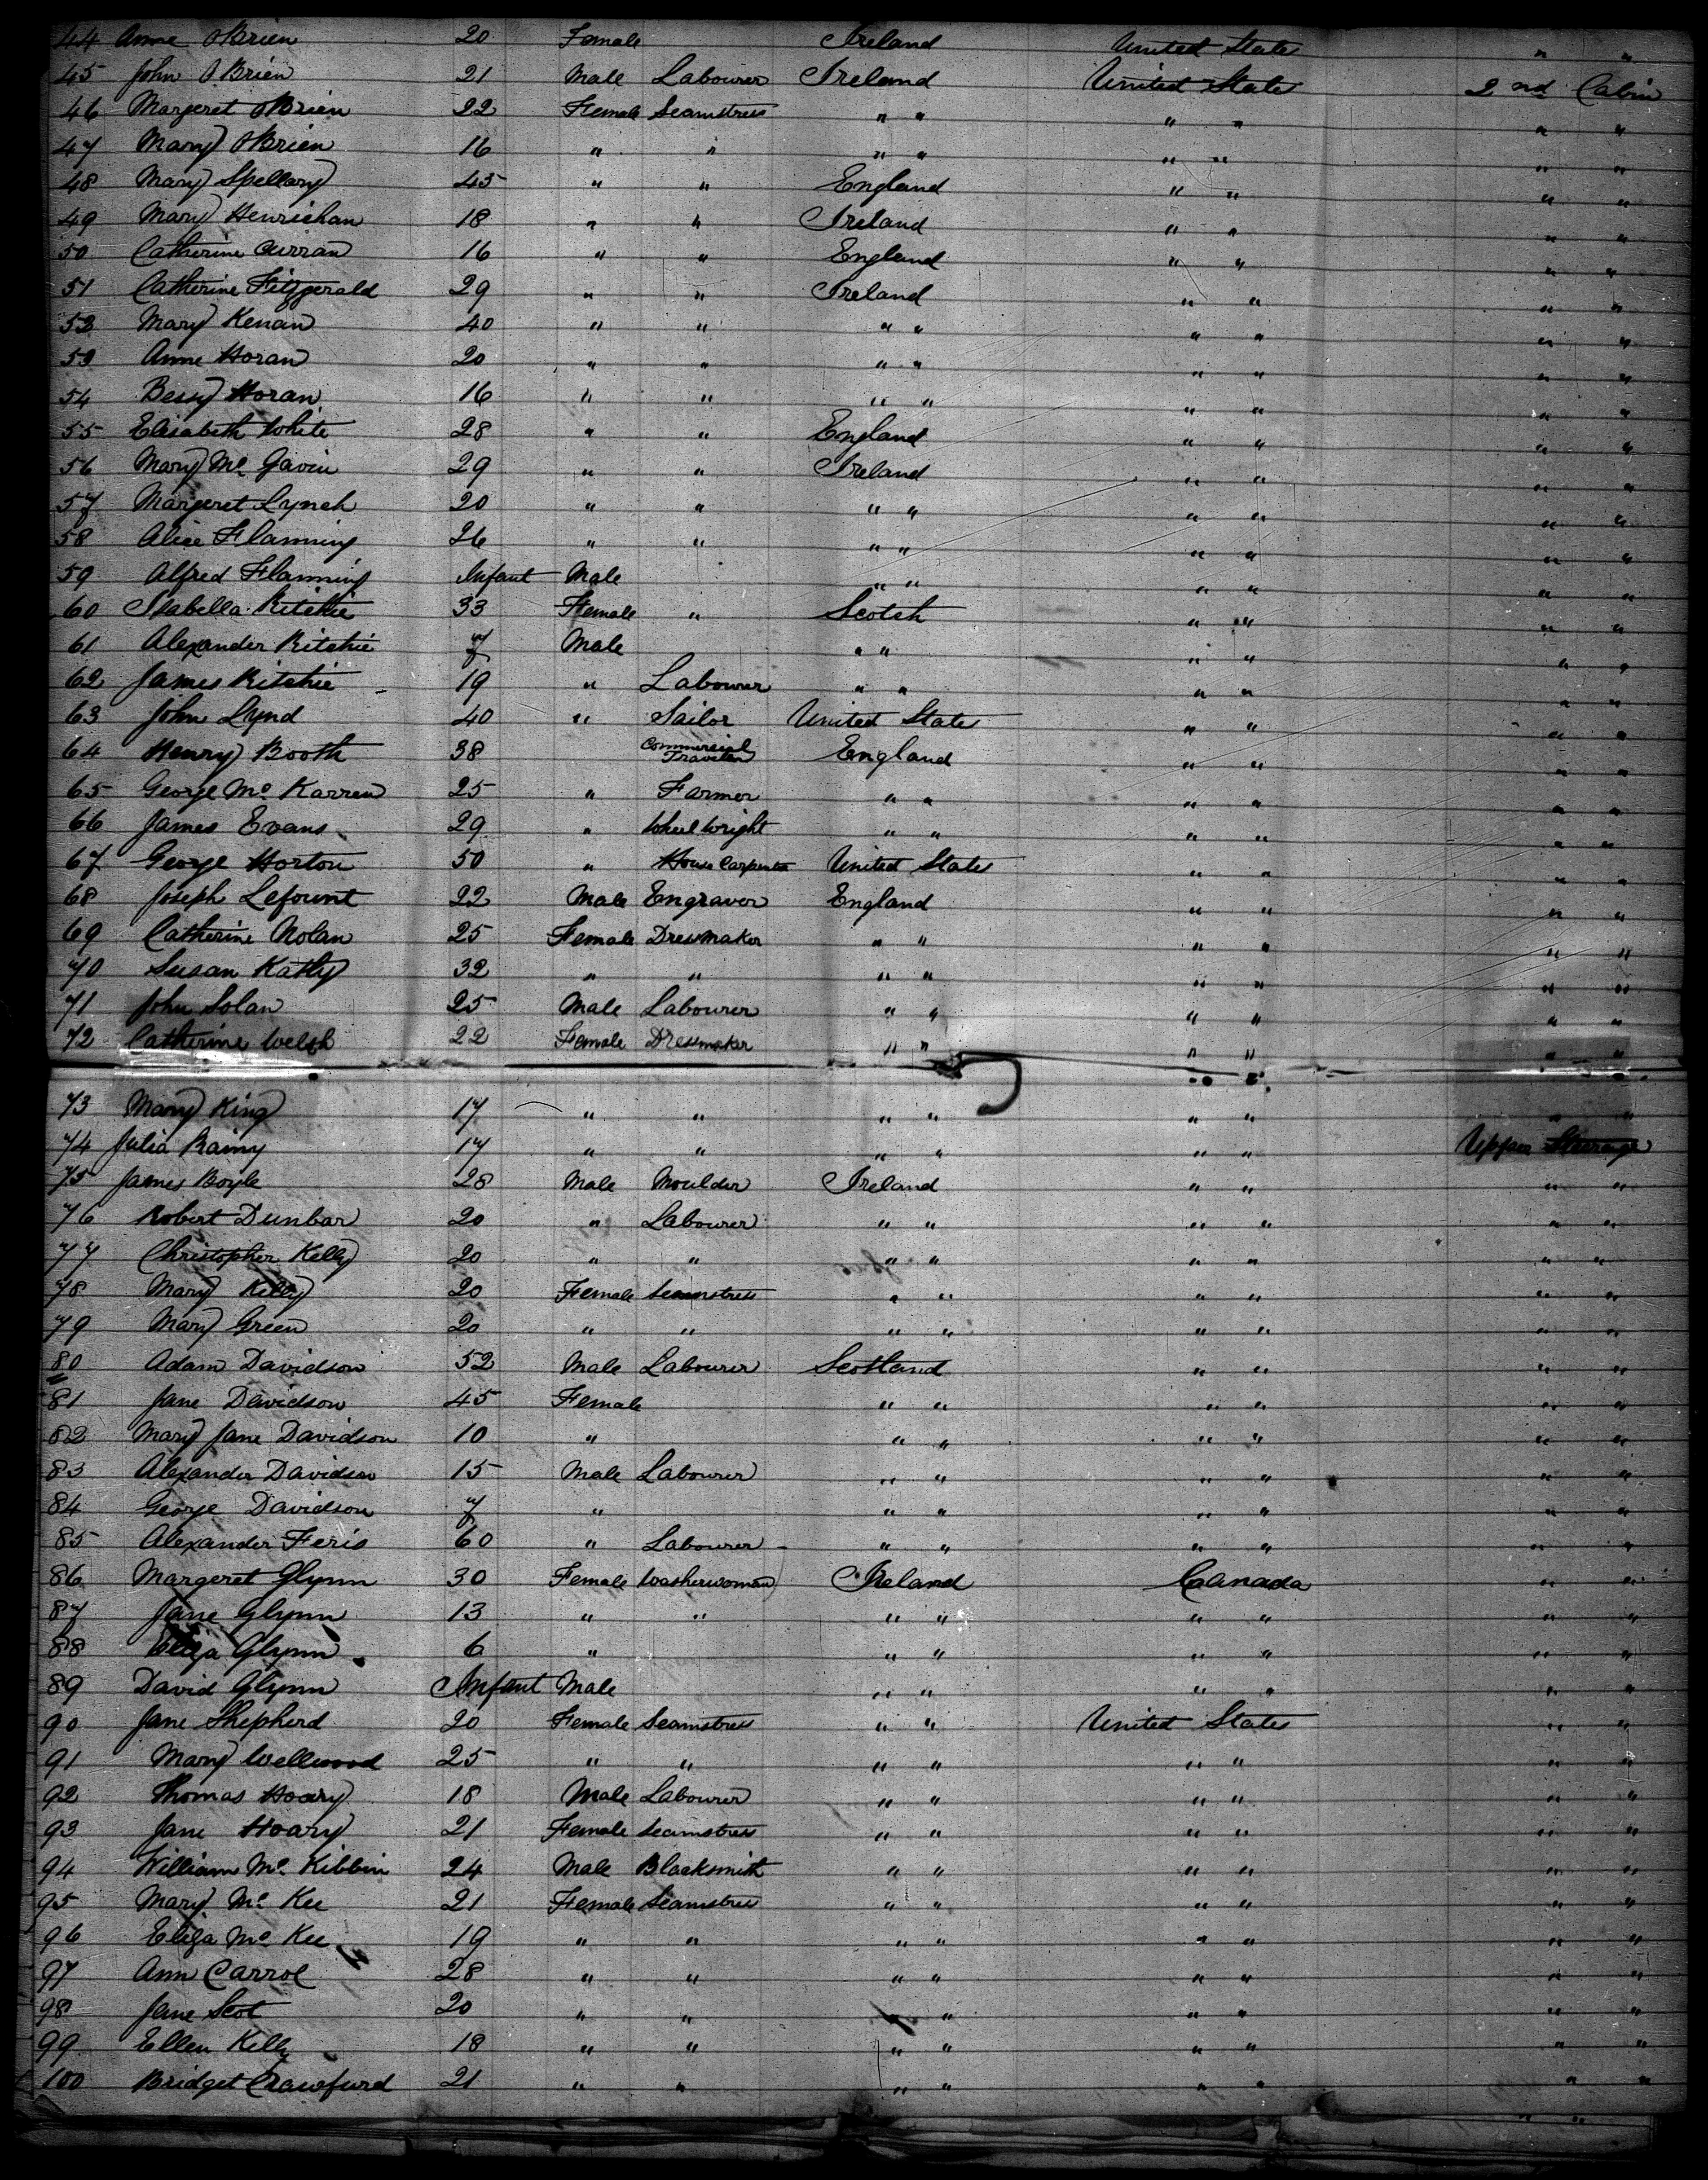 44 Anne OBrien 20 Female Ireland United States " "
45 John OBrien 21 Male Labourer Ireland United States 2nd Cabin
46 Margeret OBrien 22 Female Seamstress " " " " " "
47 Mary OBrien 16 " " " " " " " "
48 Mary Spellary 45 " " England " " " "
49 Mary Henrichan 18 " " Ireland " " " "
50 Catherine Curran 16 " " England " " " "
51 Catherine Fitzgerald 29 " " Ireland " " " "
52 Mary Kenan 40 " " " " " " " "
53 Anne Horan 20 " " " " " " " "
54 Bessy Horan 16 " " " " " " " "
55 Elisabeth White 28 " " England " " " "
56 Mary Mc Gavin 29 " " Ireland " " " "
57 Margeret Lynch 20 " " " " " " " "
58 Alice Flanning 26 " " " " " " " "
59 Alfred Flanning Infant Male " " " " " "
60 Isabella Ritchie 33 Female " Scotch " " " "
61 Alexander Ritchie 7 Male " " " " " "
62 James Ritchie 19 " Labourer " " " " " "
63 John Lynd 40 " Sailor United States " " " "
64 Henry Booth 38 Commercial Traveler England " " " "
65 George Mc Karren 25 " Farmer " " " " " "
66 James Evans 29 " Wheel Wright " " " " " "
67 George Horton 50 " House Carpenter United States " " " "
68 Joseph Lefount 22 Male Engraver England " " " "
69 Catherine Nolan 25 Female Dressmaker " " " " " "
70 Susan Kathy 32 " " " " " " " "
71 John Solan 25 Male Labourer " " " " " "
72 Catherine Welsh 22 Female Dressmaker " " " " " "
73 Mary King 17 " " " " " " " "
74 Julia Rainy 17 " " " " " " Upper Steerage
75 James Boyle 28 Male Moulder Ireland " " " "
76 Robert Dunbar 20 " Labourer " " " " " "
77 Christopher Kelly 20 " " " " " " " "
78 Mary Kelly 20 Female Seamstress " " " " " "
79 Mary Green 20 " " " " " " " "
80 Adam Davidson 52 Male Labourer Scotland " " " "
81 Jane Davidson 45 Female " " " " " "
82 Mary Jane Davidson 10 " " " " " " "
83 Alexander Davidson 15 Male Labourer " " " " " "
84 George Davidson 7 " " " " " " "
85 Alexander Feris 60 " Labourer " " " " " "
86 Margeret Glynn 30 Female Washerwoman Ireland Canada " "
87 Jane Glynn 13 " " " " " " " "
88 Eliza Glynn 6 " " " " " " "
89 David Glynn Infant Male " " " " " "
90 Jane Shepherd 20 Female Seamstress " " United States " "
91 Mary Wellwood 25 " " " " " " " "
92 Thomas Hoary 18 Male Labourer " " " " " "
93 Jane Hoary 21 Female Seamstress " " " " " "
94 William Mc Kibbin 24 Male Blacksmith " " " " " "
95 Mary Mc Kee 21 Female Seamstress " " " " " "
96 Eliza Mc Kee 19 " " " " " " " "
97 Ann Carrol 28 " " " " " " " "
98 Jane Scot 20 " " " " " " " "
99 Ellen Kelly 18 " " " " " " " "
100 Bridget Crawfurd 21 " " " " " " " "